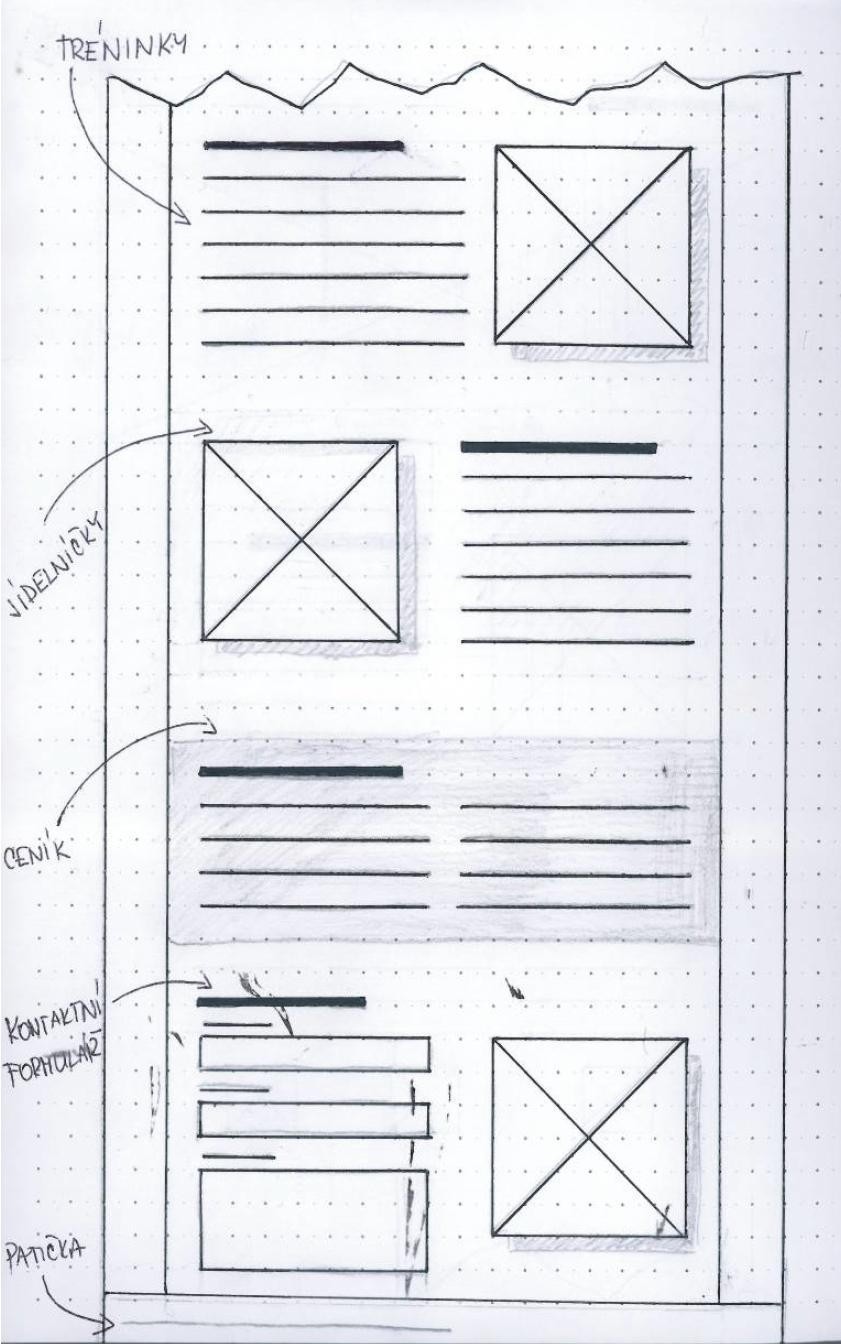 TRÉNINKY
JÍDELNÍČKY
CENÍK
KONTAKTNÍ
FORMULÁŘ
PATIČKA